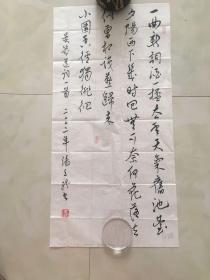 一曲新詞酒一杯去年天氣舊池臺
夕陽西下幾時回無可奈何花落去
似曾相識燕歸來
小園香徑獨徘徊
晏殊詞一首 二〇一二年